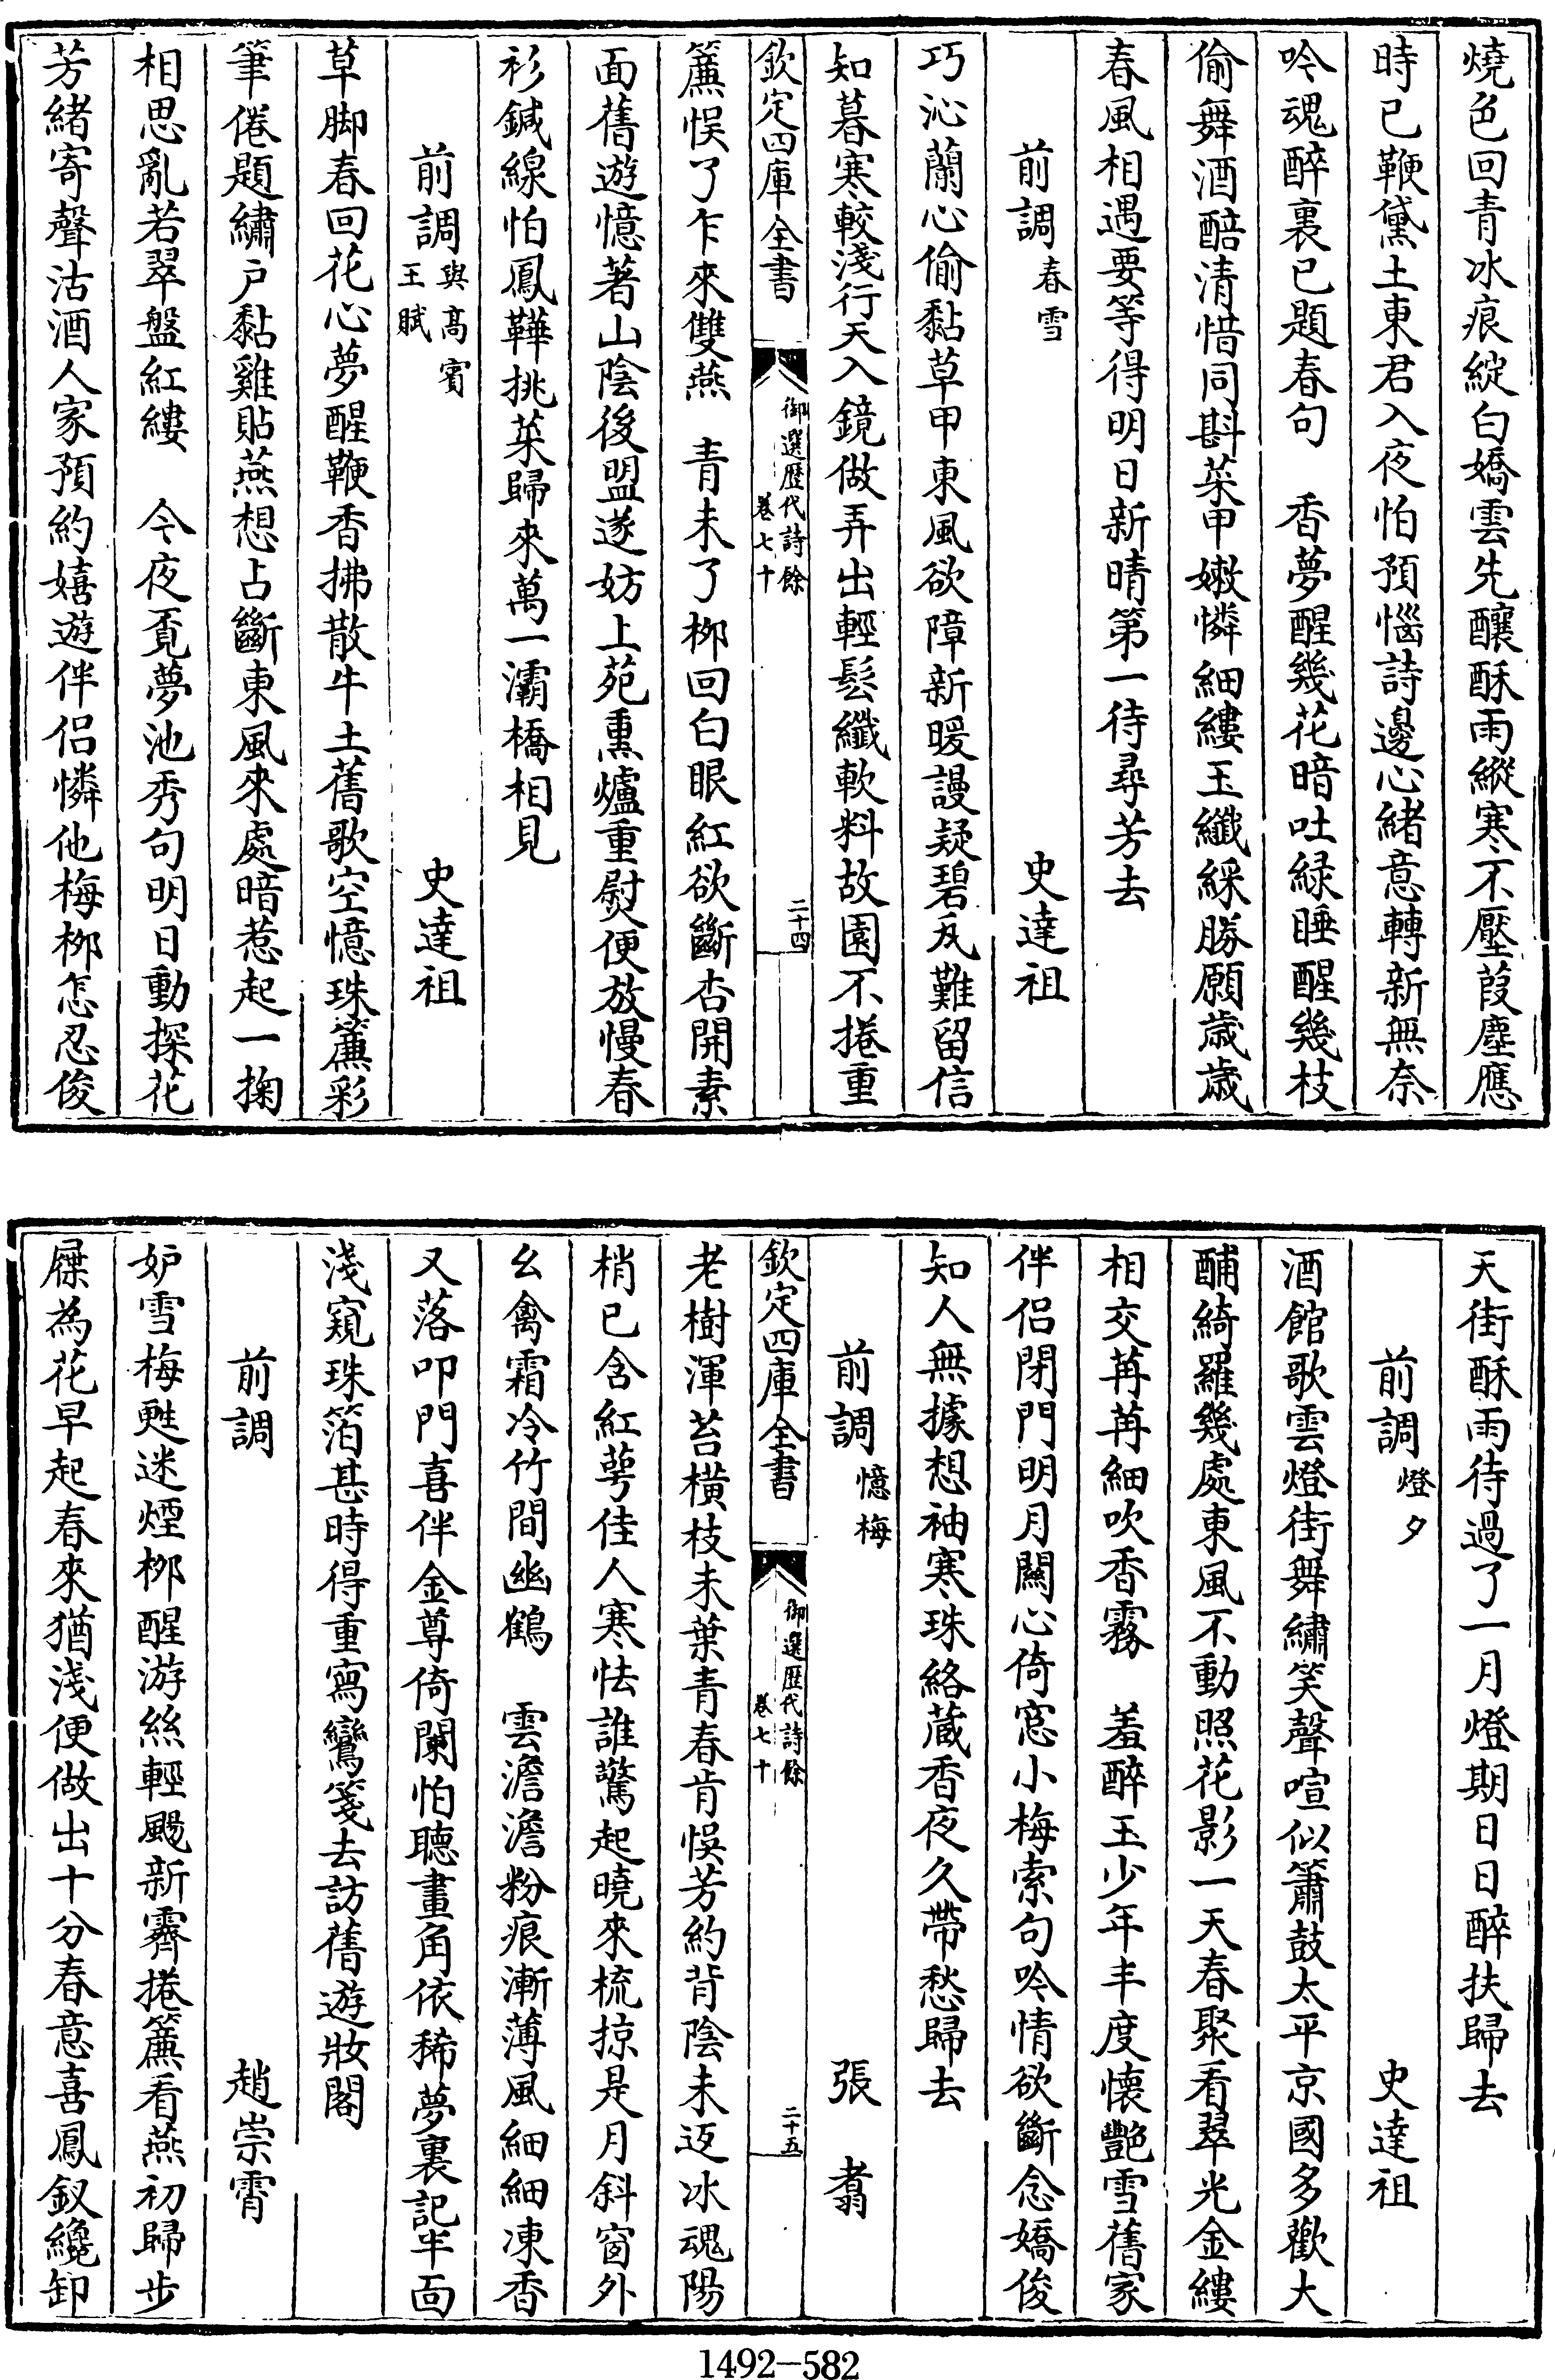 燒色回青冰痕綻白嬌雲先釀酥雨縱寒不壓葭塵應
時已鞭黛土東君入夜怕預惱詩邊心緒意轉新無奈
吟魂醉裏已題春句　香夢醒幾花暗吐緑睡醒幾枝
偷舞酒醅清惜同斟菜甲嫩憐細縷玉纖綵勝願歲歲
春風相遇要等得明日新晴第一待尋芳去
前調春雪　史達祖
巧沁蘭心偷黏草甲東風欲障新暖謾疑碧瓦難留信
知暮寒較淺行天入鏡做弄出輕鬆纖軟料故園不捲重
欽定四庫全書　御選歴代詩餘　卷七十　二十四
簾悞了乍來雙燕　青未了栁回白眼紅欲斷杏開素
面舊遊憶著山陰後盟遂妨上苑熏爐重熨便放慢春
衫鍼線怕鳳鞾挑菜歸來萬一灞橋相見
前調與高賓王賦　史達祖
草脚春回花心夢醒鞭香拂散牛土舊歌空憶珠簾彩
筆倦題繡户黏雞貼燕想占斷東風來處暗惹起一掬
相思亂若翠盤紅縷　今夜覔夢池秀句明日動探花
芳緒寄聲沽酒人家預約嬉遊伴侣憐他梅栁怎忍俊
天街酥雨待過了一月燈期日日醉扶歸去
前調燈夕　史達祖
酒館歌雲燈街舞繡笑聲喧似簫鼓太平京國多歡大
酺綺羅幾處東風不動照花影一天春聚看翠光金縷
相交苒苒細吹香霧　羞醉玉少年丰度懐艷雪舊家
伴侣閉門明月關心倚窓小梅索句吟情欲斷念嬌俊
知人無據想袖寒珠絡蔵香夜久帶愁歸去
前調憶梅　張翥
欽定四庫全書　御選歴代詩餘　卷七十　二十五
老樹渾苔横枝未葉青春肯悞芳約背陰未返冰魂陽
梢已含紅萼佳人寒怯誰驚起曉來梳掠是月斜窗外
幺禽霜冷竹間幽鶴　雲澹澹粉痕漸薄風細細凍香
又落叩門喜伴金尊倚闌怕聴畫角依稀夢裏記半面
淺窺珠箔甚時得重寫鸞箋去訪舊遊妝閣
前調　趙崇霄
妒雪梅甦迷煙栁醒游絲輕颺新霽捲簾看燕初歸步
屧為花早起春來猶淺便做出十分春意喜鳳釵纔卸
1492—582